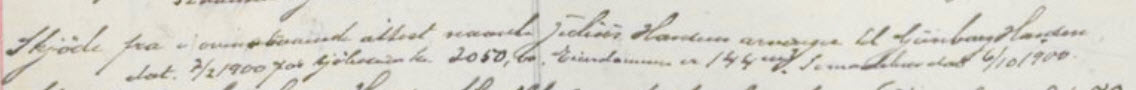 Skjöde fra i ovenstaaende attest nævnte Julius Hansens arvinger til Gunborg Hansen
dat. 7/2 1900 for kjöbesum kr. 2050,00. Eiendommen er 144 m². dat 6/10 1900.